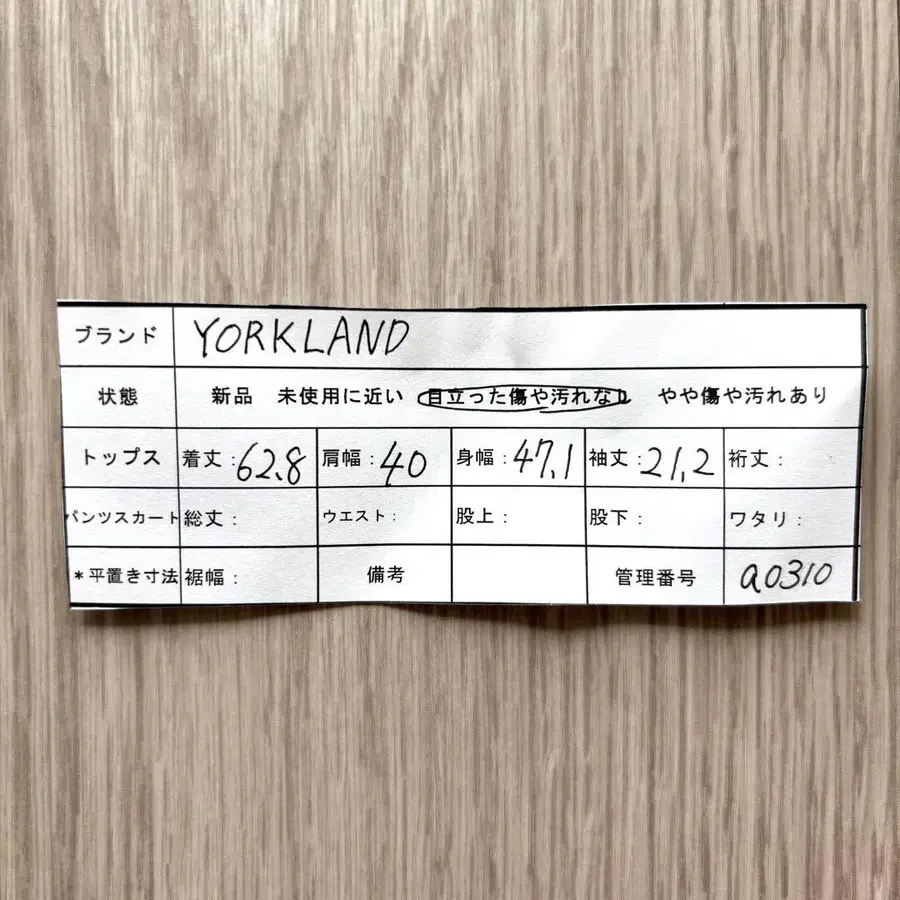 ブランド YORKLAND
状態 新品 未使用に近い 目立った傷や汚れなし やや傷や汚れあり
トップス 着丈:62.8 肩幅:40 身幅:47.1 袖丈:21.2 裄丈:
パンツスカート 総丈: ウエスト: 股上: 股下: ワタリ:
*平置き寸法 裾幅: 備考 管理番号 a0310